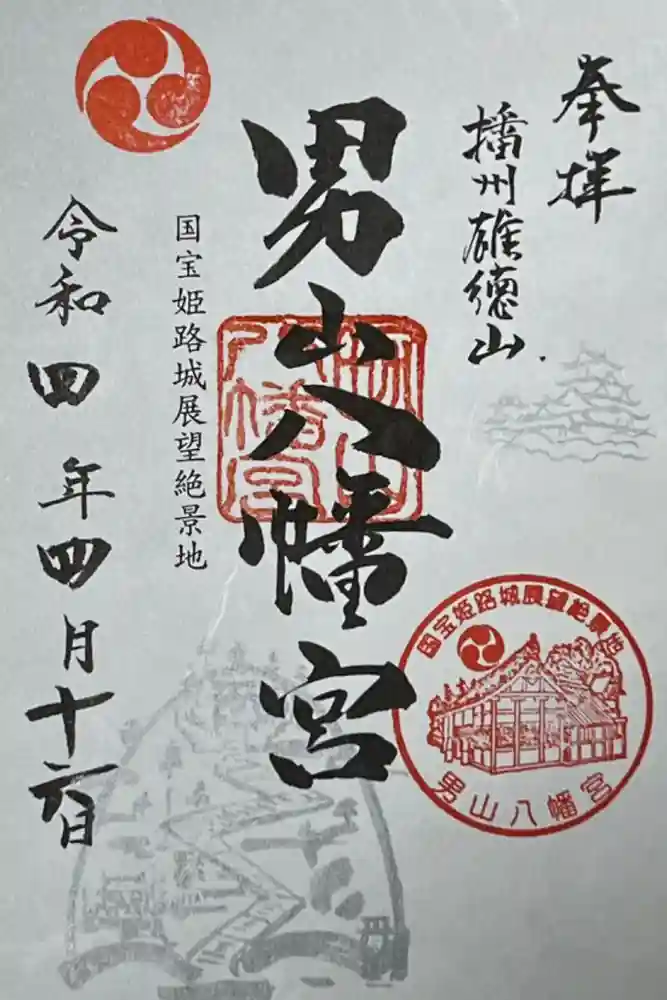 奉拝
播州雄徳山
男山八幡宮
国宝姫路城展望絶景地
令和四年四月十六日
国宝姫路城展望絶景地
男山八幡宮